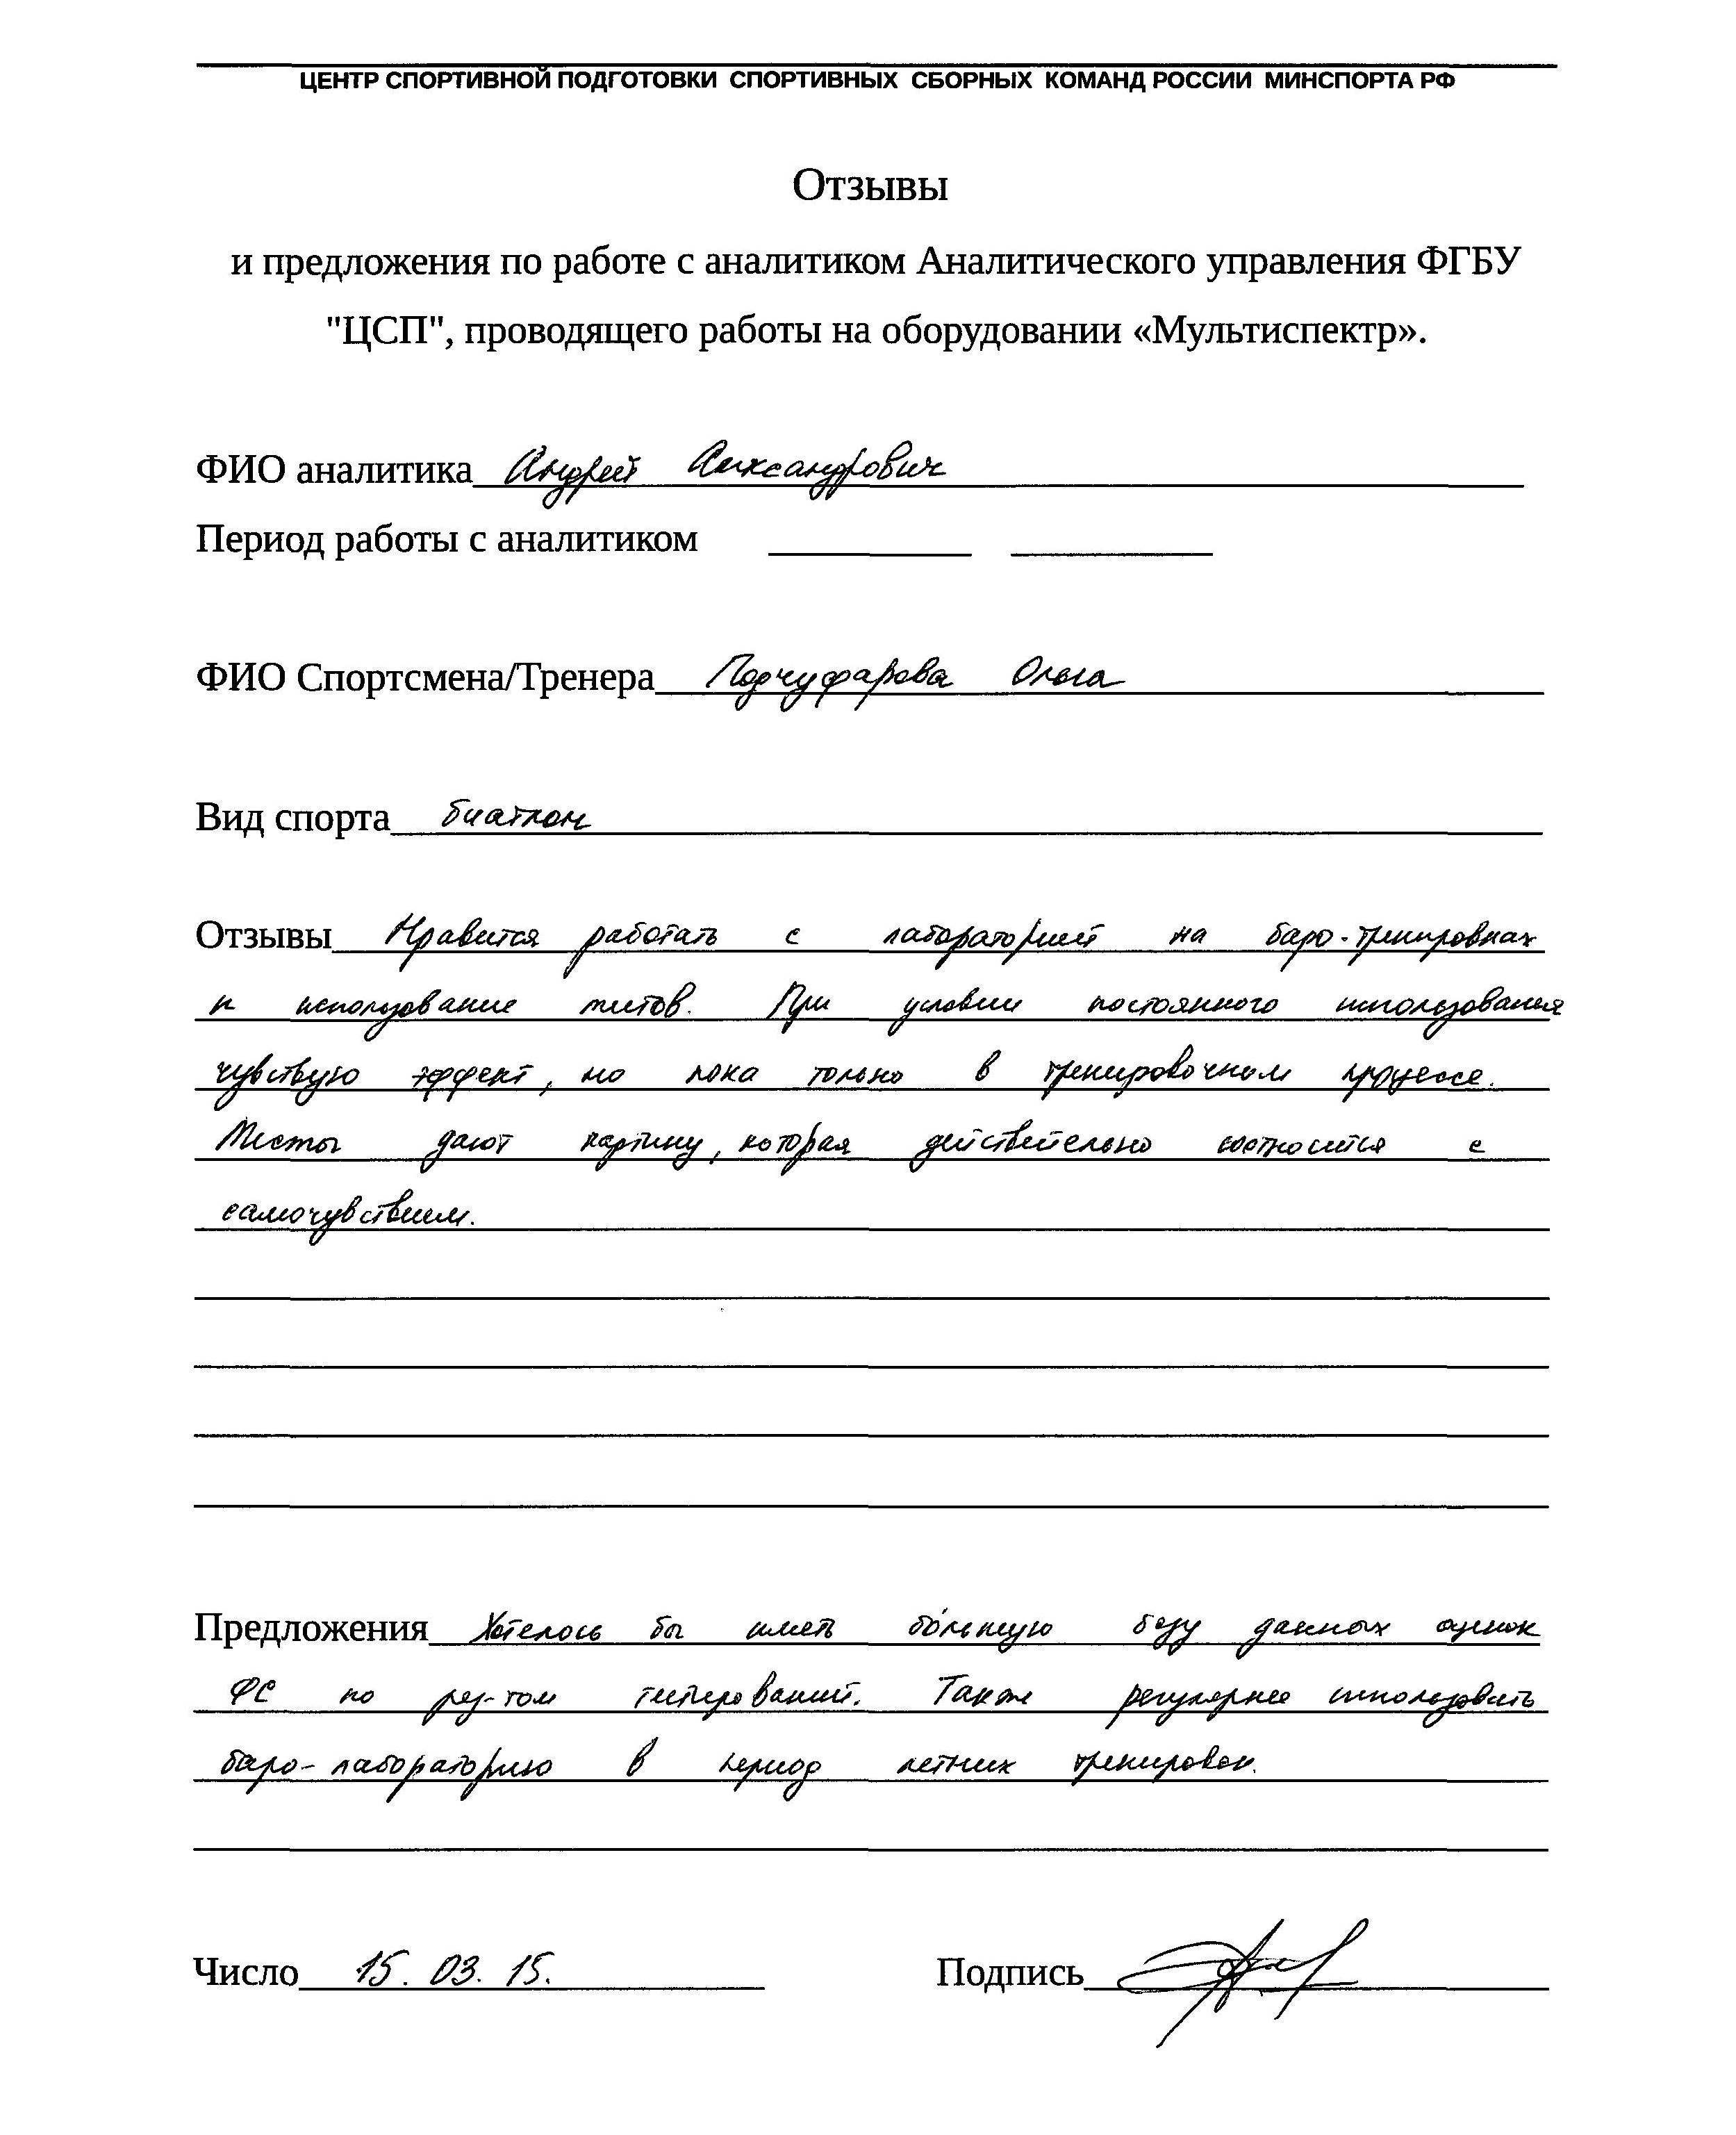 ЦЕНТР СПОРТИВНОЙ ПОДГОТОВКИ СПОРТИВНЫХ СБОРНЫХ КОМАНД РОССИИ МИНСПОРТА РФ
Отзывы
и предложения по работе с аналитиком Аналитического управления ФГБУ
"ЦСП", проводящего работы на оборудовании «Мультиспектр».
ФИО аналитика Андрей Александрович
Период работы с аналитиком
ФИО Спортсмена/Тренера Подчуфарова Ольга
Вид спорта биатлон
Отзывы Нравится работать с лабораторией на баро-тренировках
и использование тестов. При условии постоянного использования
чувствую эффект, но пока только в тренировочном процессе.
Тесты дают картину, которая действительно соотносится с
самочувствием.
Предложения Хотелось бы иметь бо́льшую базу данных оценок
ФС по рез-том тестирований. Также регулярнее использовать
баро-лабораторию в период летних тренировок.
Число 15.03.15. Подпись